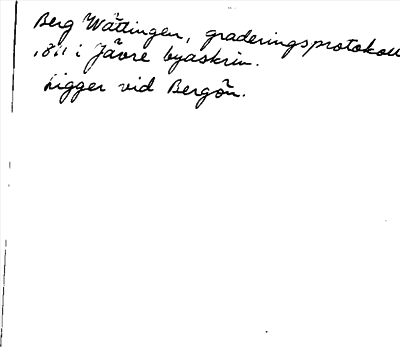 Berg Wättingen, graderingsprotokoll
i Jävre byaskrin.
Ligger vid Bergön.